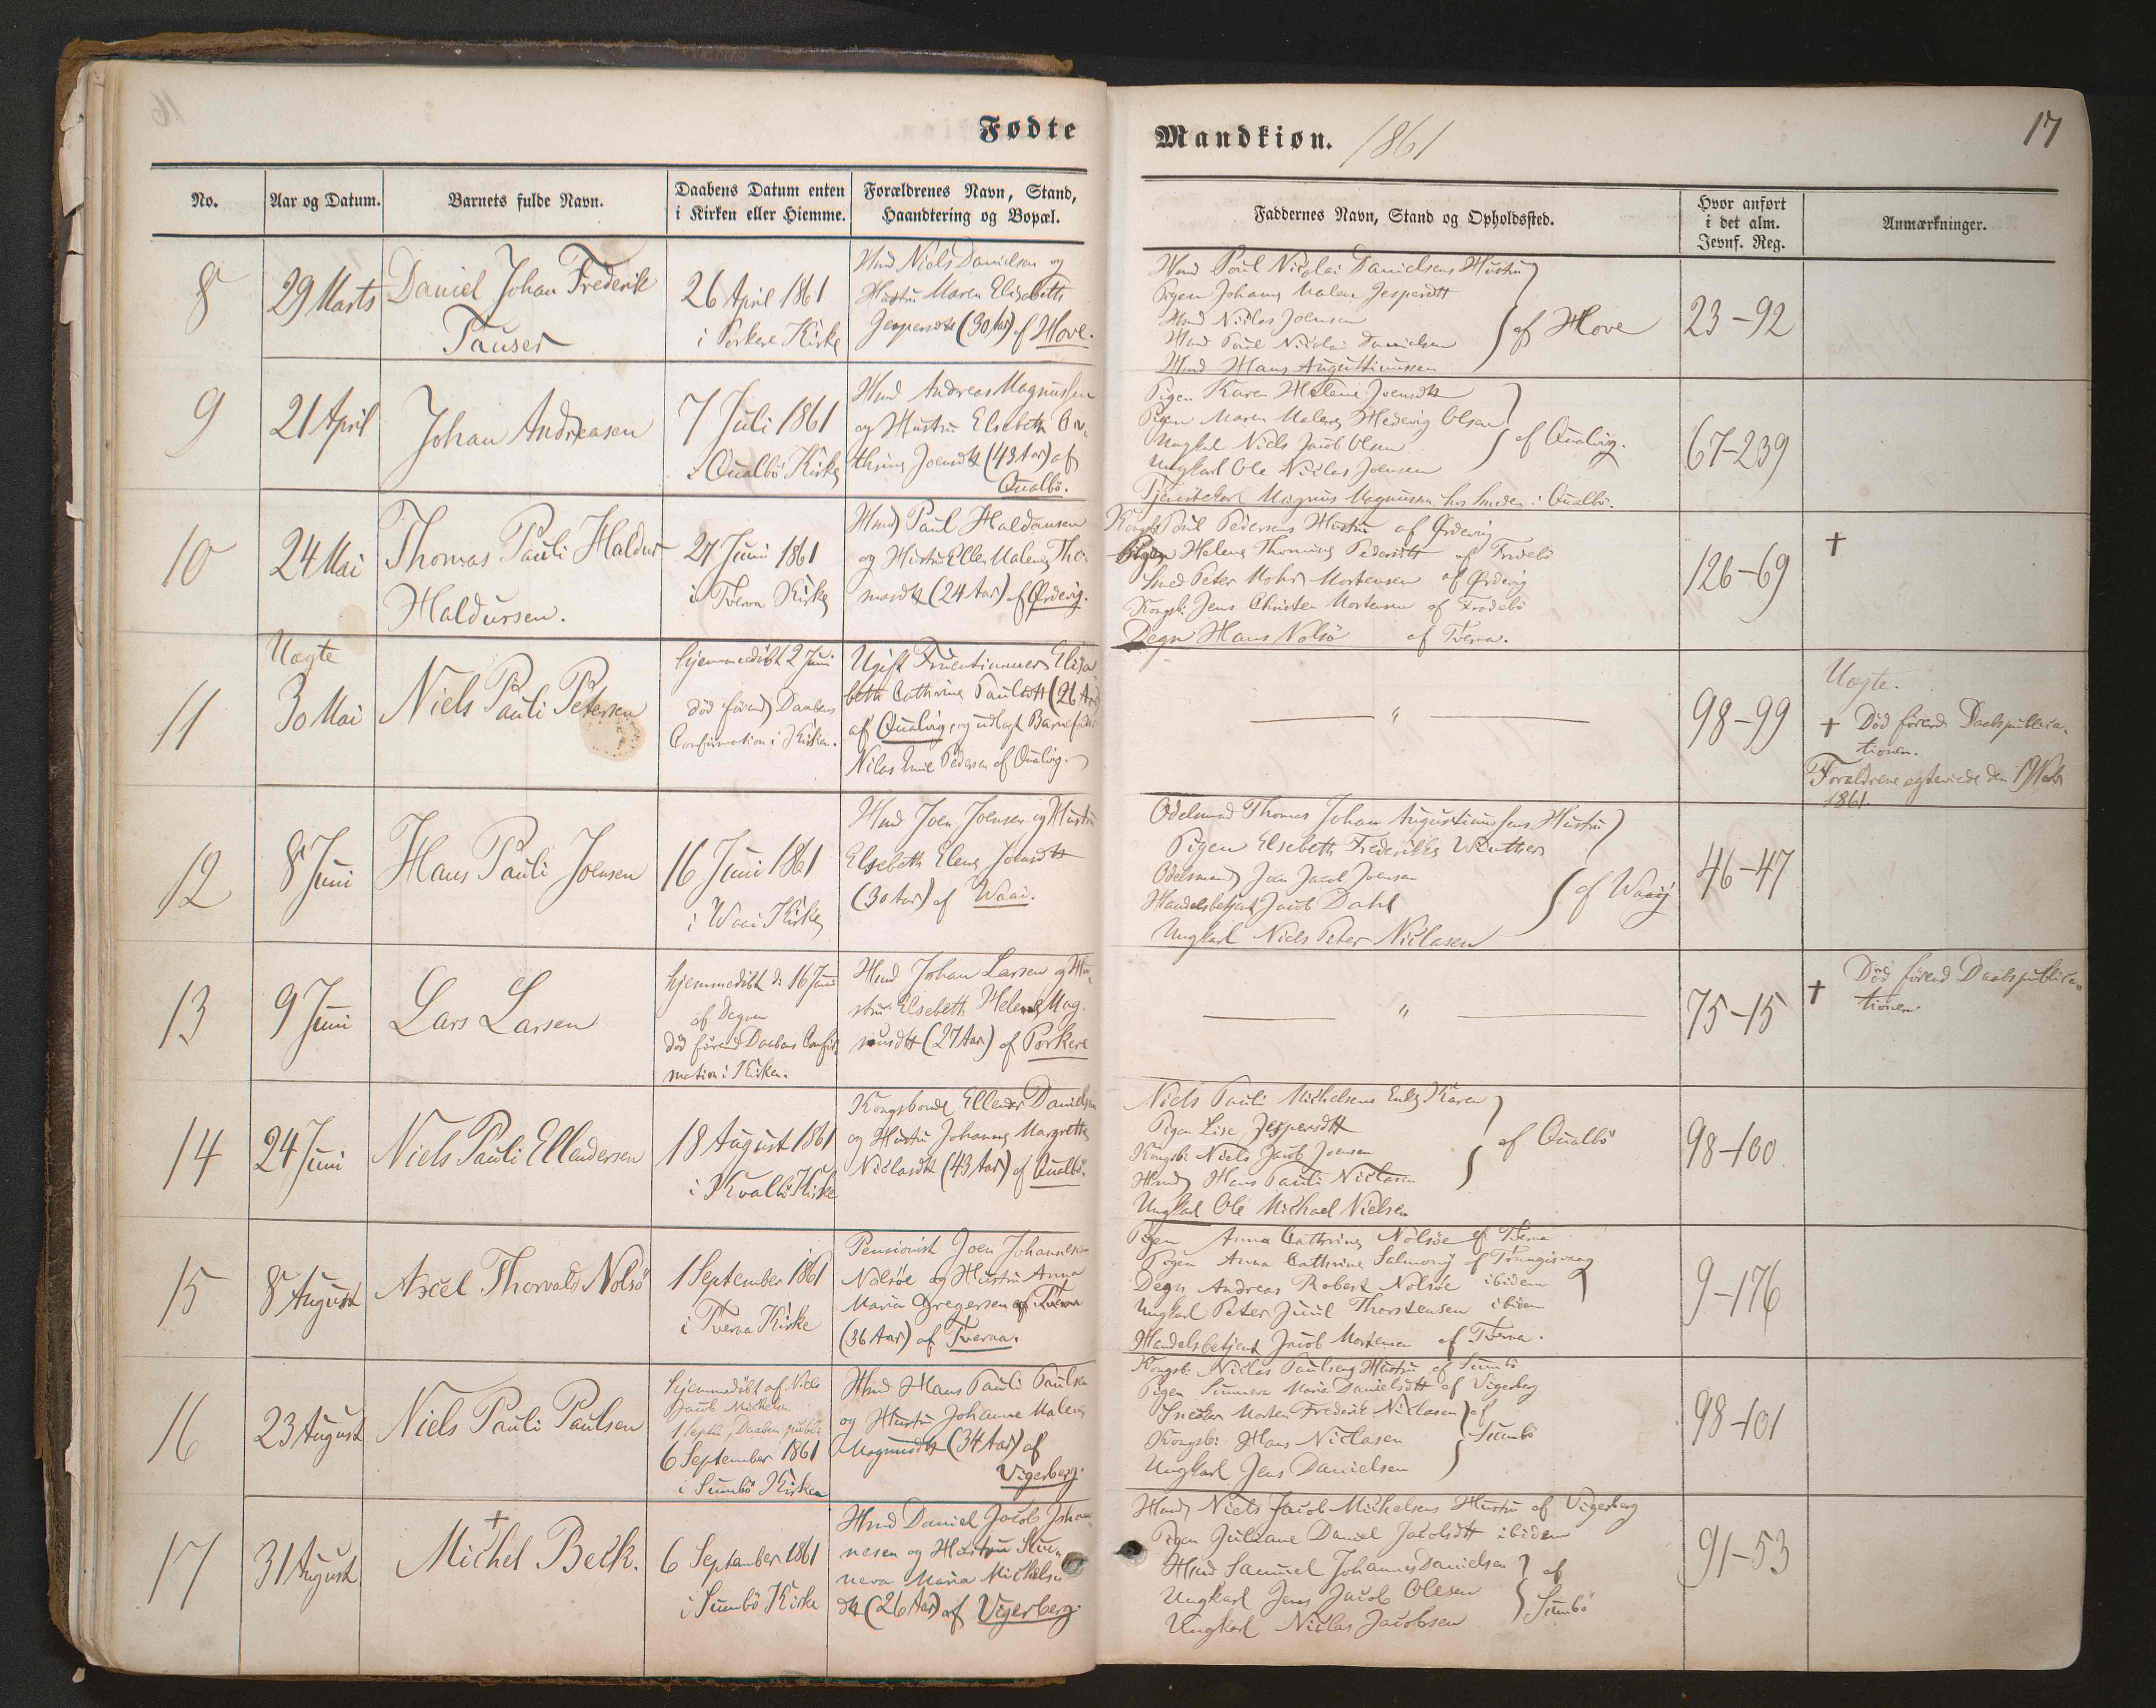 Fødte
Mandkiøn. 1861
17
No.
Aar og Datum.
Barnets fulde Navn.
Daabens Datum enten
i Kirken eller Hiemme.
Forældrenes Navn, Stand,
Haandtering og Bopæl.
Faddernes Navn, Stand og Opholdssted.
Hvor anført
i det alm.
Jevnf. Reg.
Anmærkninger.
8
29 Marts
Daniel Johan Frederik
Pauser
26 April 1861
i Porkere Kirke
Hmd Niels Danielsen og
Hustru Maren Elisabeth
Jespersdtt (30 Aar) af Hove.
Hmd Poul Nicolai Danielsens Hustru
Pigen Johanne Malene Jespersdtt
Hmd Niclas Joensen
Hmd Poul Nicolai Danielsen
Hmd Hans Augustinussen
af Hove
23-92
9
21 April
Johan Andreasen
7 Juli 1861
i Qualbö Kirke
Hmd Andreas Magnussen
og Hustru Elsebeth Ca-
thrine Joensdtt (43 Aar) af
Qualbö.
Pigen Karen Helene Joensdtt
Pigen Maren Malene Hedevig Olsen
Ungkarl Niels Jacob Olsen
Ungkarl Ole Niclas Joensen
af Qualvig.
Tjenestekarl Magnus Magnussen hos Smeden i Qualbö.
67-239
10
24 Mai
Thomas Pauli Haldur
Haldursen.
27 Juni 1861
i Tveraa Kirke
Hmd Paul Haldansen
og Hustru Ellen Malene Tho-
masdtt (24 Aar) af Ørdevig.
Kongsb. Poul Pedersens Hustru af Ørdevig
Pigen Helene Thomine Pedersdtt af Frodebö
Smed Peter Mohr Mortensen af Ørdevig
Kongsb: Jens Christen Mortensen af Frodebö
Degn Hans Nolsö af Tveraa.
126-69
†
11
Uægte
30 Mai
Niels Pauli Petersen
hjemmedöbt 2 Juni
död förend Daabens
Confirmation i Kirken.
Ugift Fruentimmer Elisa
beth Cathrine Paulsdtt (26 Aar)
af Qualvig og udlagt Barnefader
Nilas Emil Pedersen af Qualvig.
"
98-99
Uægte.
† Död förend Daabspublica-
tionen.
Forældrene egteviede den 19 Novbr
1861.
12
8 Juni
Hans Pauli Joensen
16 Juni 1861
i Waai Kirke
Hmd Joen Joensen og Hustru
Elsebeth Elene Joensdtt
(30 Aar) af Waai.
Odelsmand Thomas Johan Augustinussens Hustru
Pigen Elsebeth Frederikke Winther
Odelsmand Joen Jacob Joensen
Handelsbetjent Jacob Dahl
Ungkarl Niels Peter Niclasen
af Waaij
46-47
13
9 Juni
Lars Larsen
hjemmedöbt d: 16 Juni
af Degnen
död förend Daabens Confir-
mation i Kirken.
Hmd Johan Larsen og Hu-
stru Elsebeth Helene Mag-
nusdtt (27 Aar) af Porkere
"
75-15
† Död förend Daabspublica-
tionen.
14
24 Juni
Niels Pauli Ellendersen
18 August 1861
i Kvalbö Kirke
Kongsbonde Ellendr Danielsen
og Hustru Johanne Margrethe
Niclasdtt (43 Aar) af Qualbö.
Niels Pauli Michelsens Enke Karen
Pigen Lise Jespersdtt
Kongsb: Niels Jacob Joensen
Hmd Hans Pauli Niclasen
Ungkarl Ole Michael Nielsen
af Qualbö
98-100
15
8 August
Axel Thorvald Nolsö
1 September 1861
i Tveraa Kirke
Pensionist Joen Johannesen
Nolsöe og Hustru Anna
Maria Gregersen af Tveraa
(36 Aar) af Tveraa.
Pigen Anna Cathrine Nolsöe af Tveraa
Pigen Anna Cathrine Salmonÿ af Trangisvaag
Degn Andreas Robert Nolsöe ibidem
Ungkarl Peter Juul Thorstensen ibidem
Handelsbetjent Jacob Mortensen af Tveraa.
9-176
16
23 August
Niels Pauli Paulsen
hjemmedöbt af Niels
Jacob Michelsen
1 Septbr, Daaben publ:
6 September 1861
i Sumbö Kirke
Hmd Hans Pauli Paulsen
og Hustru Johanne Malene
Magnusdtt (34 Aar) af
Vigerberg.
Kongsb: Niclas Paulsens Hustru af Sumbö
Pigen Sunneva Maria Danielsdtt af Vigerberg
Snedker Morten Frederik Niclasen
Kongsb: Hans Niclasen
Ungkarl Jens Danielsen
af
Sumbö
98-101
17
31 August
†
Michel Beck.
6 September 1861
i Sumbö Kirke
Hmd Daniel Jacob Johan-
nesen og Hustru Sun-
neva Maria Michels-
dtt (26 Aar) af Vigerberg.
Hmd Niels Jacob Michelsens Hustru af Vigerberg
Pigen Juliane Daniel Jacobsdtt ibidem
Hmd Samuel Johannes Danielsen
Ungkarl Jens Jacob Olesen
Ungkarl Niclas Jacobsen
af
Sumbö
91-53